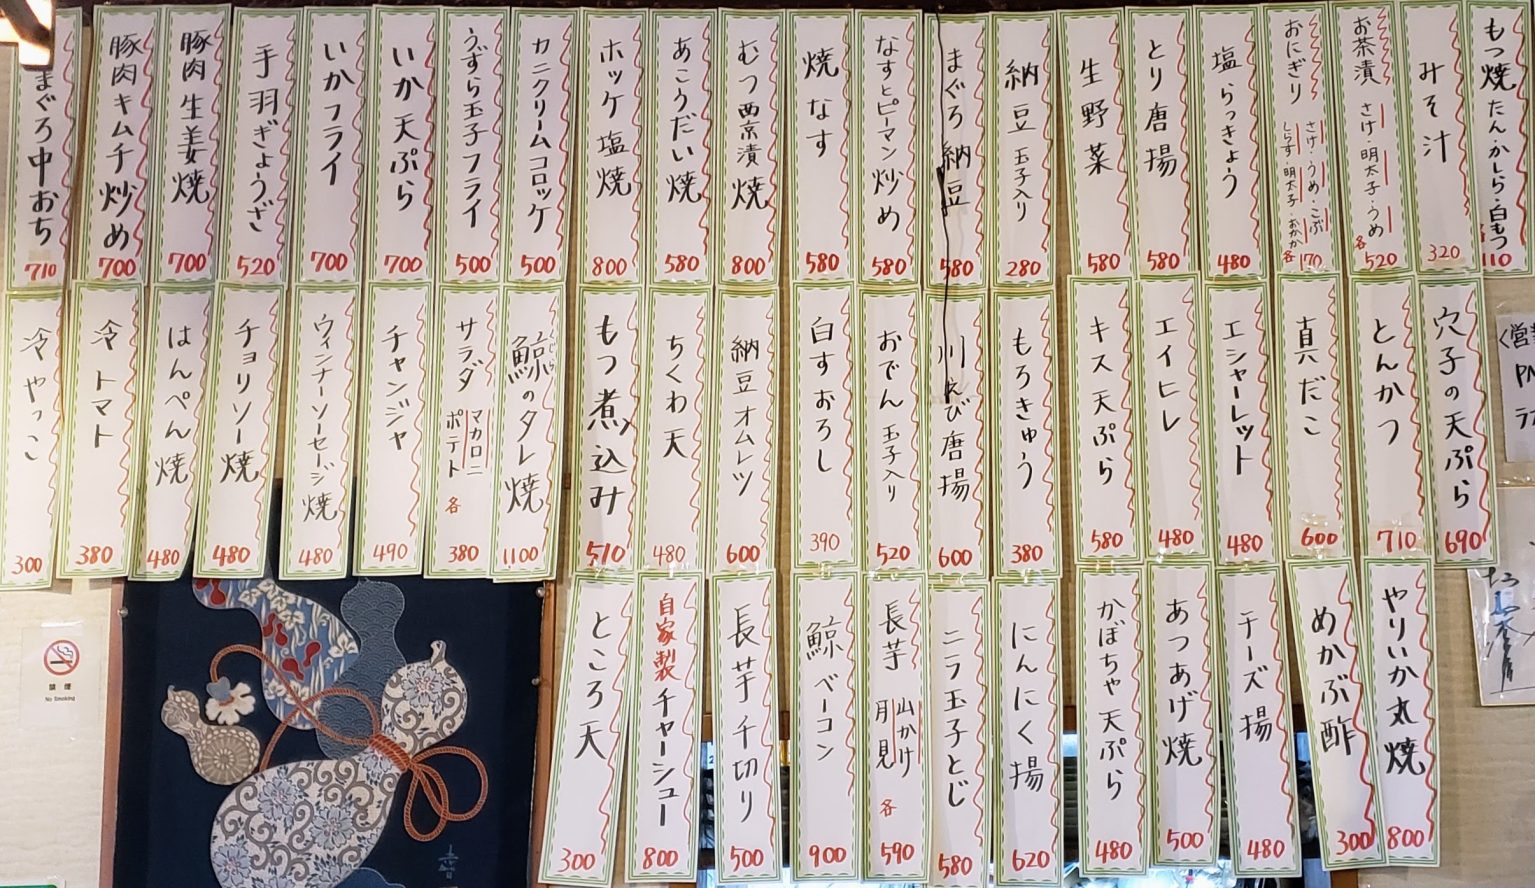 もつ焼 たん・かしら・白もつ 各110
みそ汁 320
お茶漬 さけ・明太子・うめ 各520
おにぎり さけ・うめ・こぶ しらす 明太子・おかか 各170
塩らっきょう 480
とり唐揚 580
生野菜 580
納豆 玉子入り 280
まぐろ納豆 580
なすとピーマン炒め 580
焼なす 580
むつ西京漬焼 800
あこうだい焼 580
ホッケ塩焼 800
カニクリームコロッケ 500
うずら玉子フライ 500
いか天ぷら 700
いかフライ 700
手羽ぎょうざ 520
豚肉生姜焼 700
豚肉キムチ炒め 700
まぐろ中おち 710
穴子の天ぷら 690
とんかつ 710
真だこ 600
エシャーレット 480
エイヒレ 480
キス天ぷら 580
もろきゅう 380
川えび唐揚 600
おでん 玉子入り 520
白すおろし 390
納豆オムレツ 600
ちくわ天 480
もつ煮込み 510
鯨のタレ焼 1100
サラダ マカロニ ポテト 各380
チャンジャ 490
ウィンナーソーセージ焼 480
チョリソー焼 480
はんぺん焼 480
冷トマト 380
冷やっこ 300
やりいか丸焼 800
めかぶ酢 300
チーズ揚 480
あつあげ焼 500
かぼちゃ天ぷら 480
にんにく揚 620
ニラ玉子とじ 580
長芋 山かけ 月見 各590
鯨ベーコン 900
長芋千切り 500
自家製チャーシュー 800
ところ天 300
禁煙
No Smoking